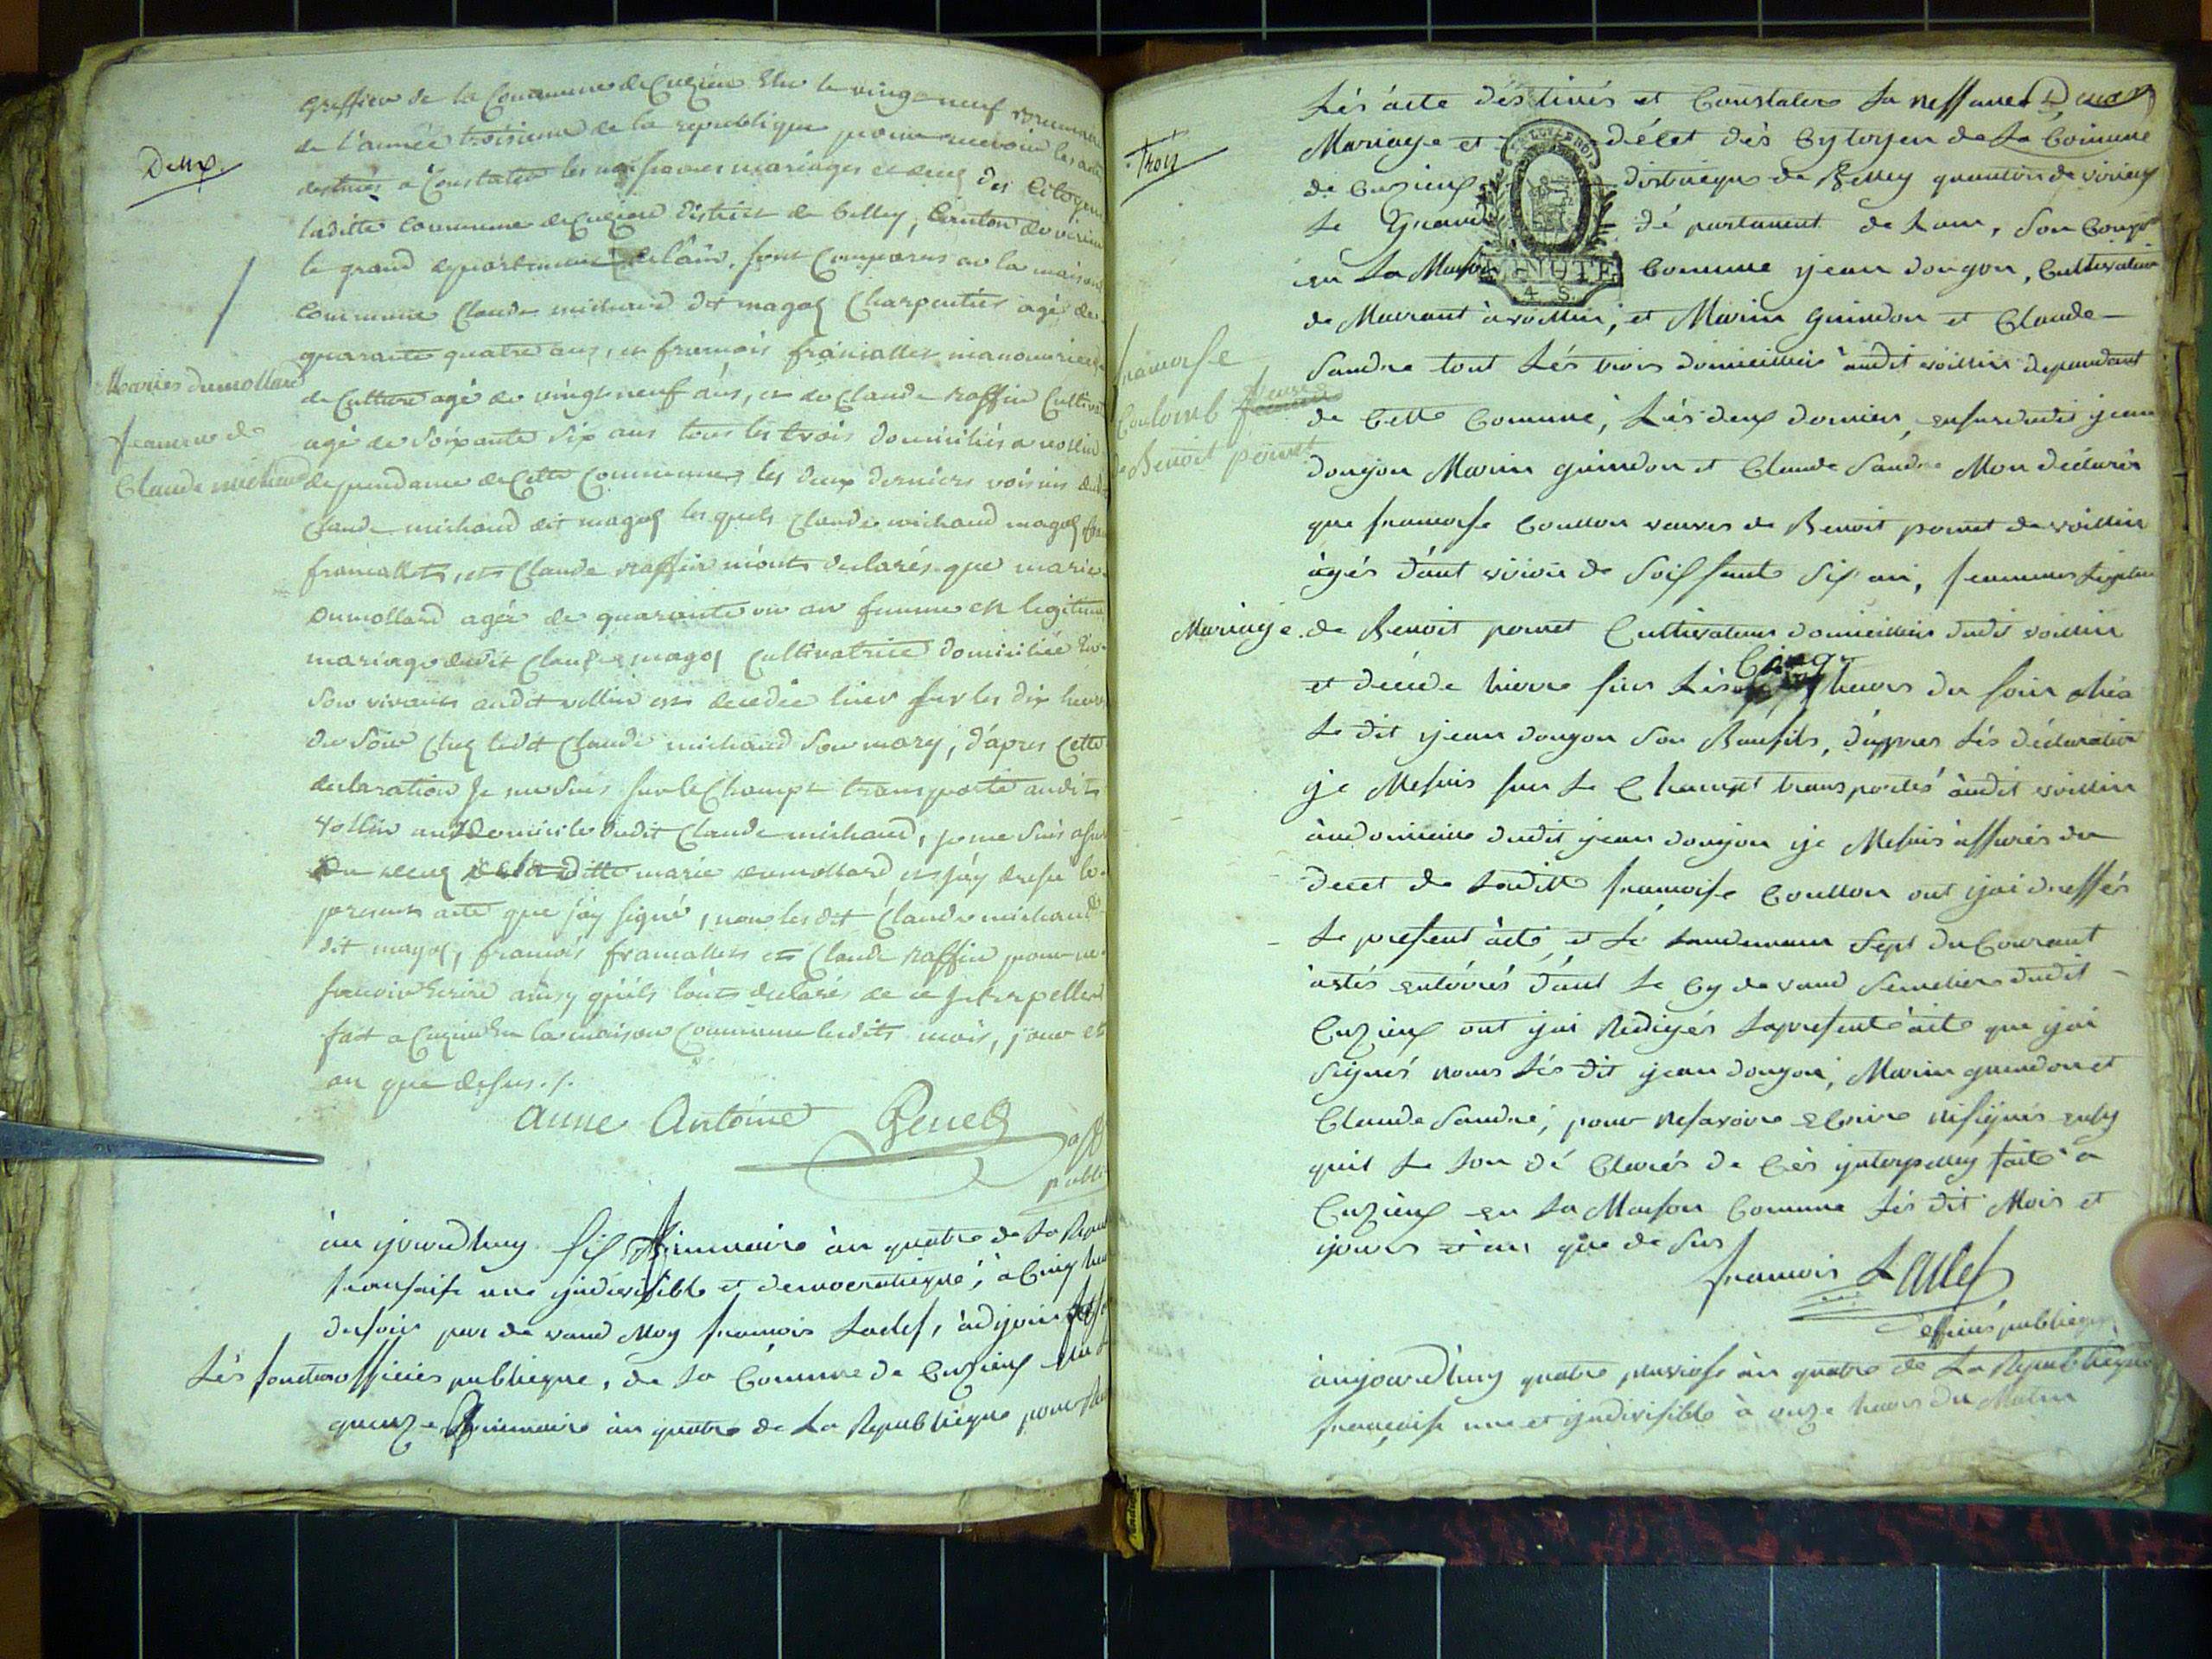 Deux.
greffier de la Commune de Cuzieu Elu le vingt neuf
de l'année troisieme de la republique pour recevoir les actes
destinés a Constater les naissances mariages et deces des Citoyens
laditte Commune de Cuzieu district de belley, Canton de virieu
le grand departement de l'ain. sont Comparus en la maison
Commune Claude michaud dit magol Charpentier agé de
quarante quatre ans, et francois francallet manouvrier
de Culture agé de vingt neuf ans, et de Claude raffin Cultiv
agé de soixante six ans tous les trois domiciliés a vollin
dependance de Cette Commune, les deux derniers voisins dudit
Claude michaud dit magol les quels Claude michaud magol
francallet, et Claude raffin m'onts declarés que marie
Dumollard agée de quarante un an femme en legitime
mariage dudit Claude magol Cultivatrice domiciliée de
son vivant audit vollin est decedée hier sur les dix heures
du soir Chez ledit Claude michaud son mary, d'apres Cette
declaration je me suis sur le Champt transporté audit
vollin au Domicile dudit Claude michaud, je me suis assuré
du deces de laditte marie dumollard, et j'ay dressé le
present acte que j'ay signé, non lesdit Claude michaud
dit magol, francois francallet et Claude raffin pour ne
scavoir Ecrire ainsy qu'ils l'onts declarés de ce Interpellés
fait a Cuzieu En la maison Commune lesdits mois, jour et
an que dessus./.
Marie dumollard
femme de
Claude michaud
anne Antoine Genet
off
publi
àu ijourdhuy six frimmaire àn quatre de La Repu
fransaise une ijndivisible et democratique, à Cinq heu
dusoir par de vand Moy francois Laclef, àdijoint
Lés fonction officiés publicque, de La Commune de Cuzieux Elu le
quinze Brimmaire àn quatre de La Republicque pour
Trois
Lés àcte déstinés et Constater La Nessance
Mariage et décet dés Cytoyen de La Commune
de Cuzieux distrique de Belley quanton de virieux
Le Grand dé partament de Lain, son Comp
en La Maison Commune ijean dougon, Cultivateur
MINUTE
4 S.
de Meurant à vollien, et Marin guindon et Claude
Sandre tout Lés trois domicillier àudit voillin dependant
de Cette Commune, Lés deux dernier, dudit ijean
dougon Marin guindon et Claude Sandre Mon déclarér
que francoise Coullon veuves de Benoit pomet de voillin
àgés d'ant viron de soissante six an, feamme Legitime
Mariage. de Benoit pomet Cultivateur domicillier dudit voillin
et décéde hierre sur Lés Cinq heures du soir chés
Le dit ijean dougon son Baufils, d'appres Lés déclaration
ije Mesuis sur Le Champt transportés àudit voillin
àudomicille dudit ijean dougon ije Mesuis àssurés du
decet de Laditte francoise Coullon ont ijai dressés
Le present àcte, et Le Landemain sept du Courant
àstés entérrés dant Le Cy de vand Semetiere dudit
Cuzieux ont ijai Redigés Lapresente àcte que ijai
signés nous Lés dit ijean dougon, Marin guindon et
Claude Sandre, pour Nesavoire Ecrire Nisignés
quil Le Lon dé Clarés de Cés ijnterpelley faite à
Cuzieux en La Maison Commune Lés dit Mois et
ijours et àn que de sus
francoise
Coulomb veuve
de Benoit pomet
francois Laclef
officiés publicque
àujourdhuy quatre pluviose àn quatre de La Republicque
francaise une et ijndivisible à onze heures du Matin